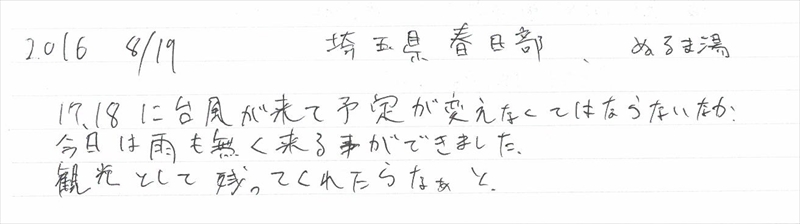 2016 8/19 埼玉県春日部、ぬるま湯
17,18に台風が来て予定が変えなくてはならないなか、
今日は雨も無く来る事ができました。
観光として残ってくれたらなぁと。